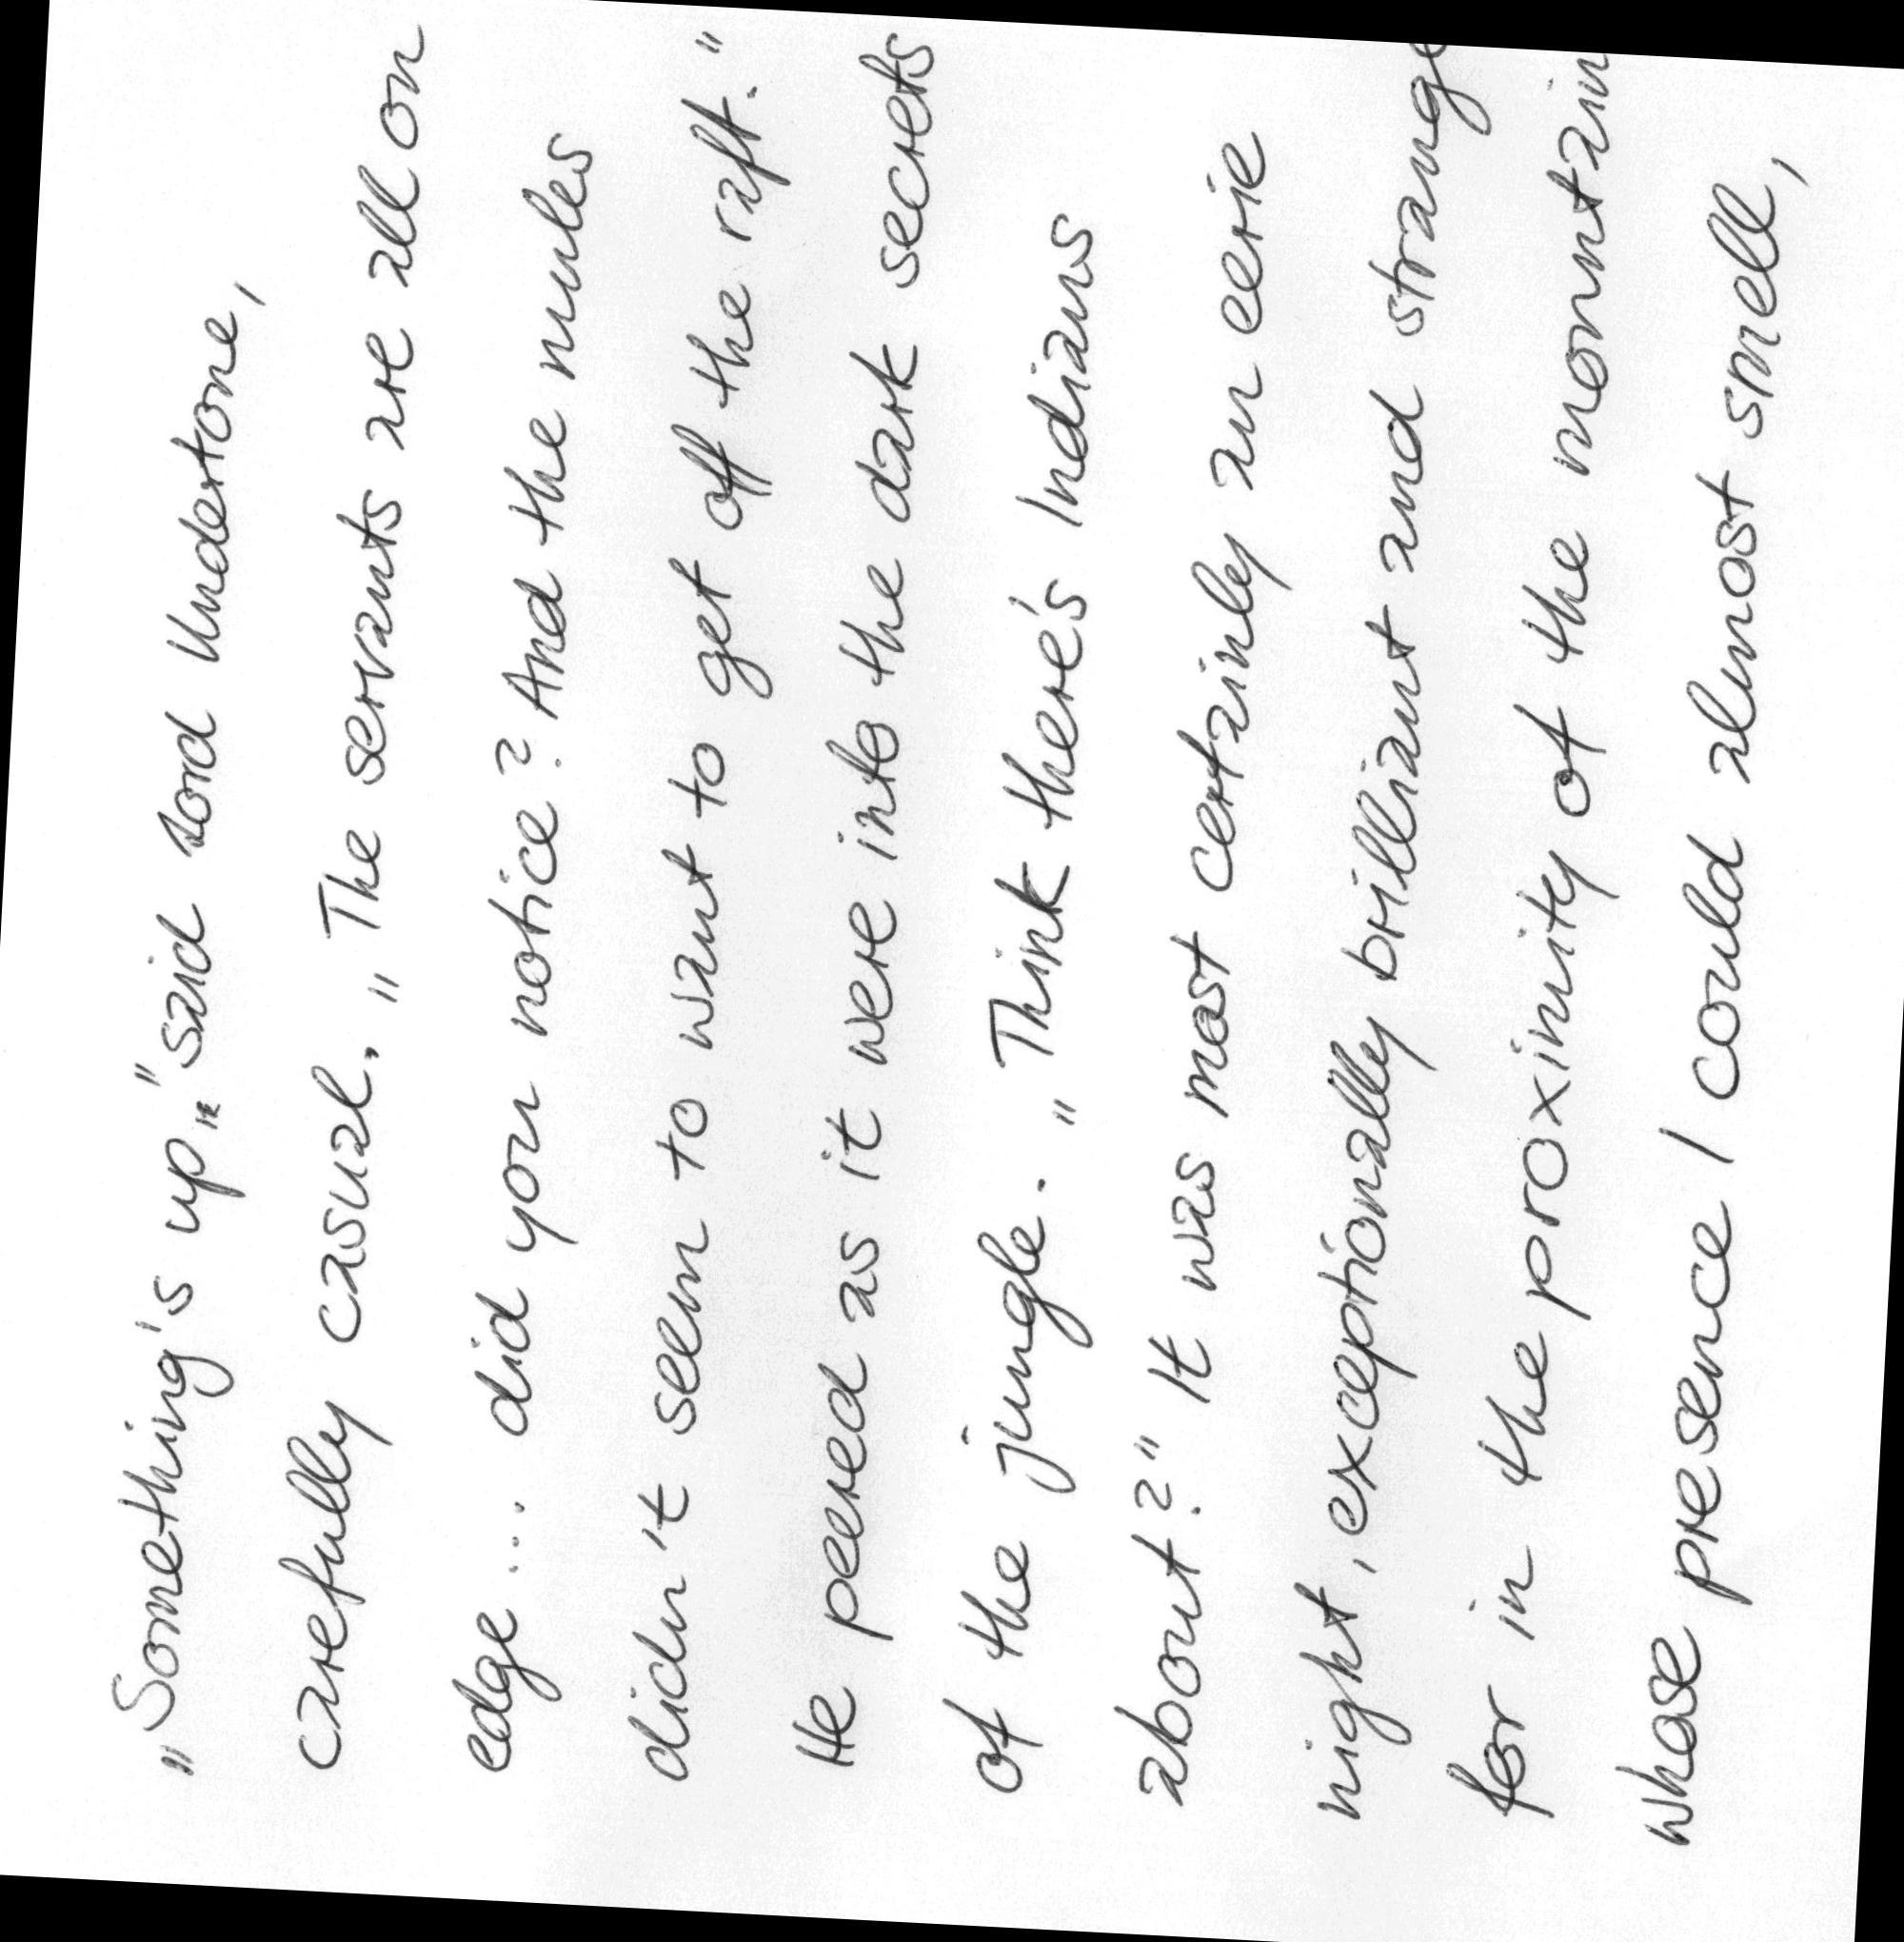 „Something's up," said Lord Undertone,
carefully casual. „The servants are all on
edge... did you notice? And the mules
didn't seem to want to get off the raft."
He peered as it were into the dark secrets
of the jungle. „Think there's Indians
about?" It was most certainly an eerie
night, exceptionally brilliant and strange
for in the proximity of the mountain
whose presence I could almost smell,